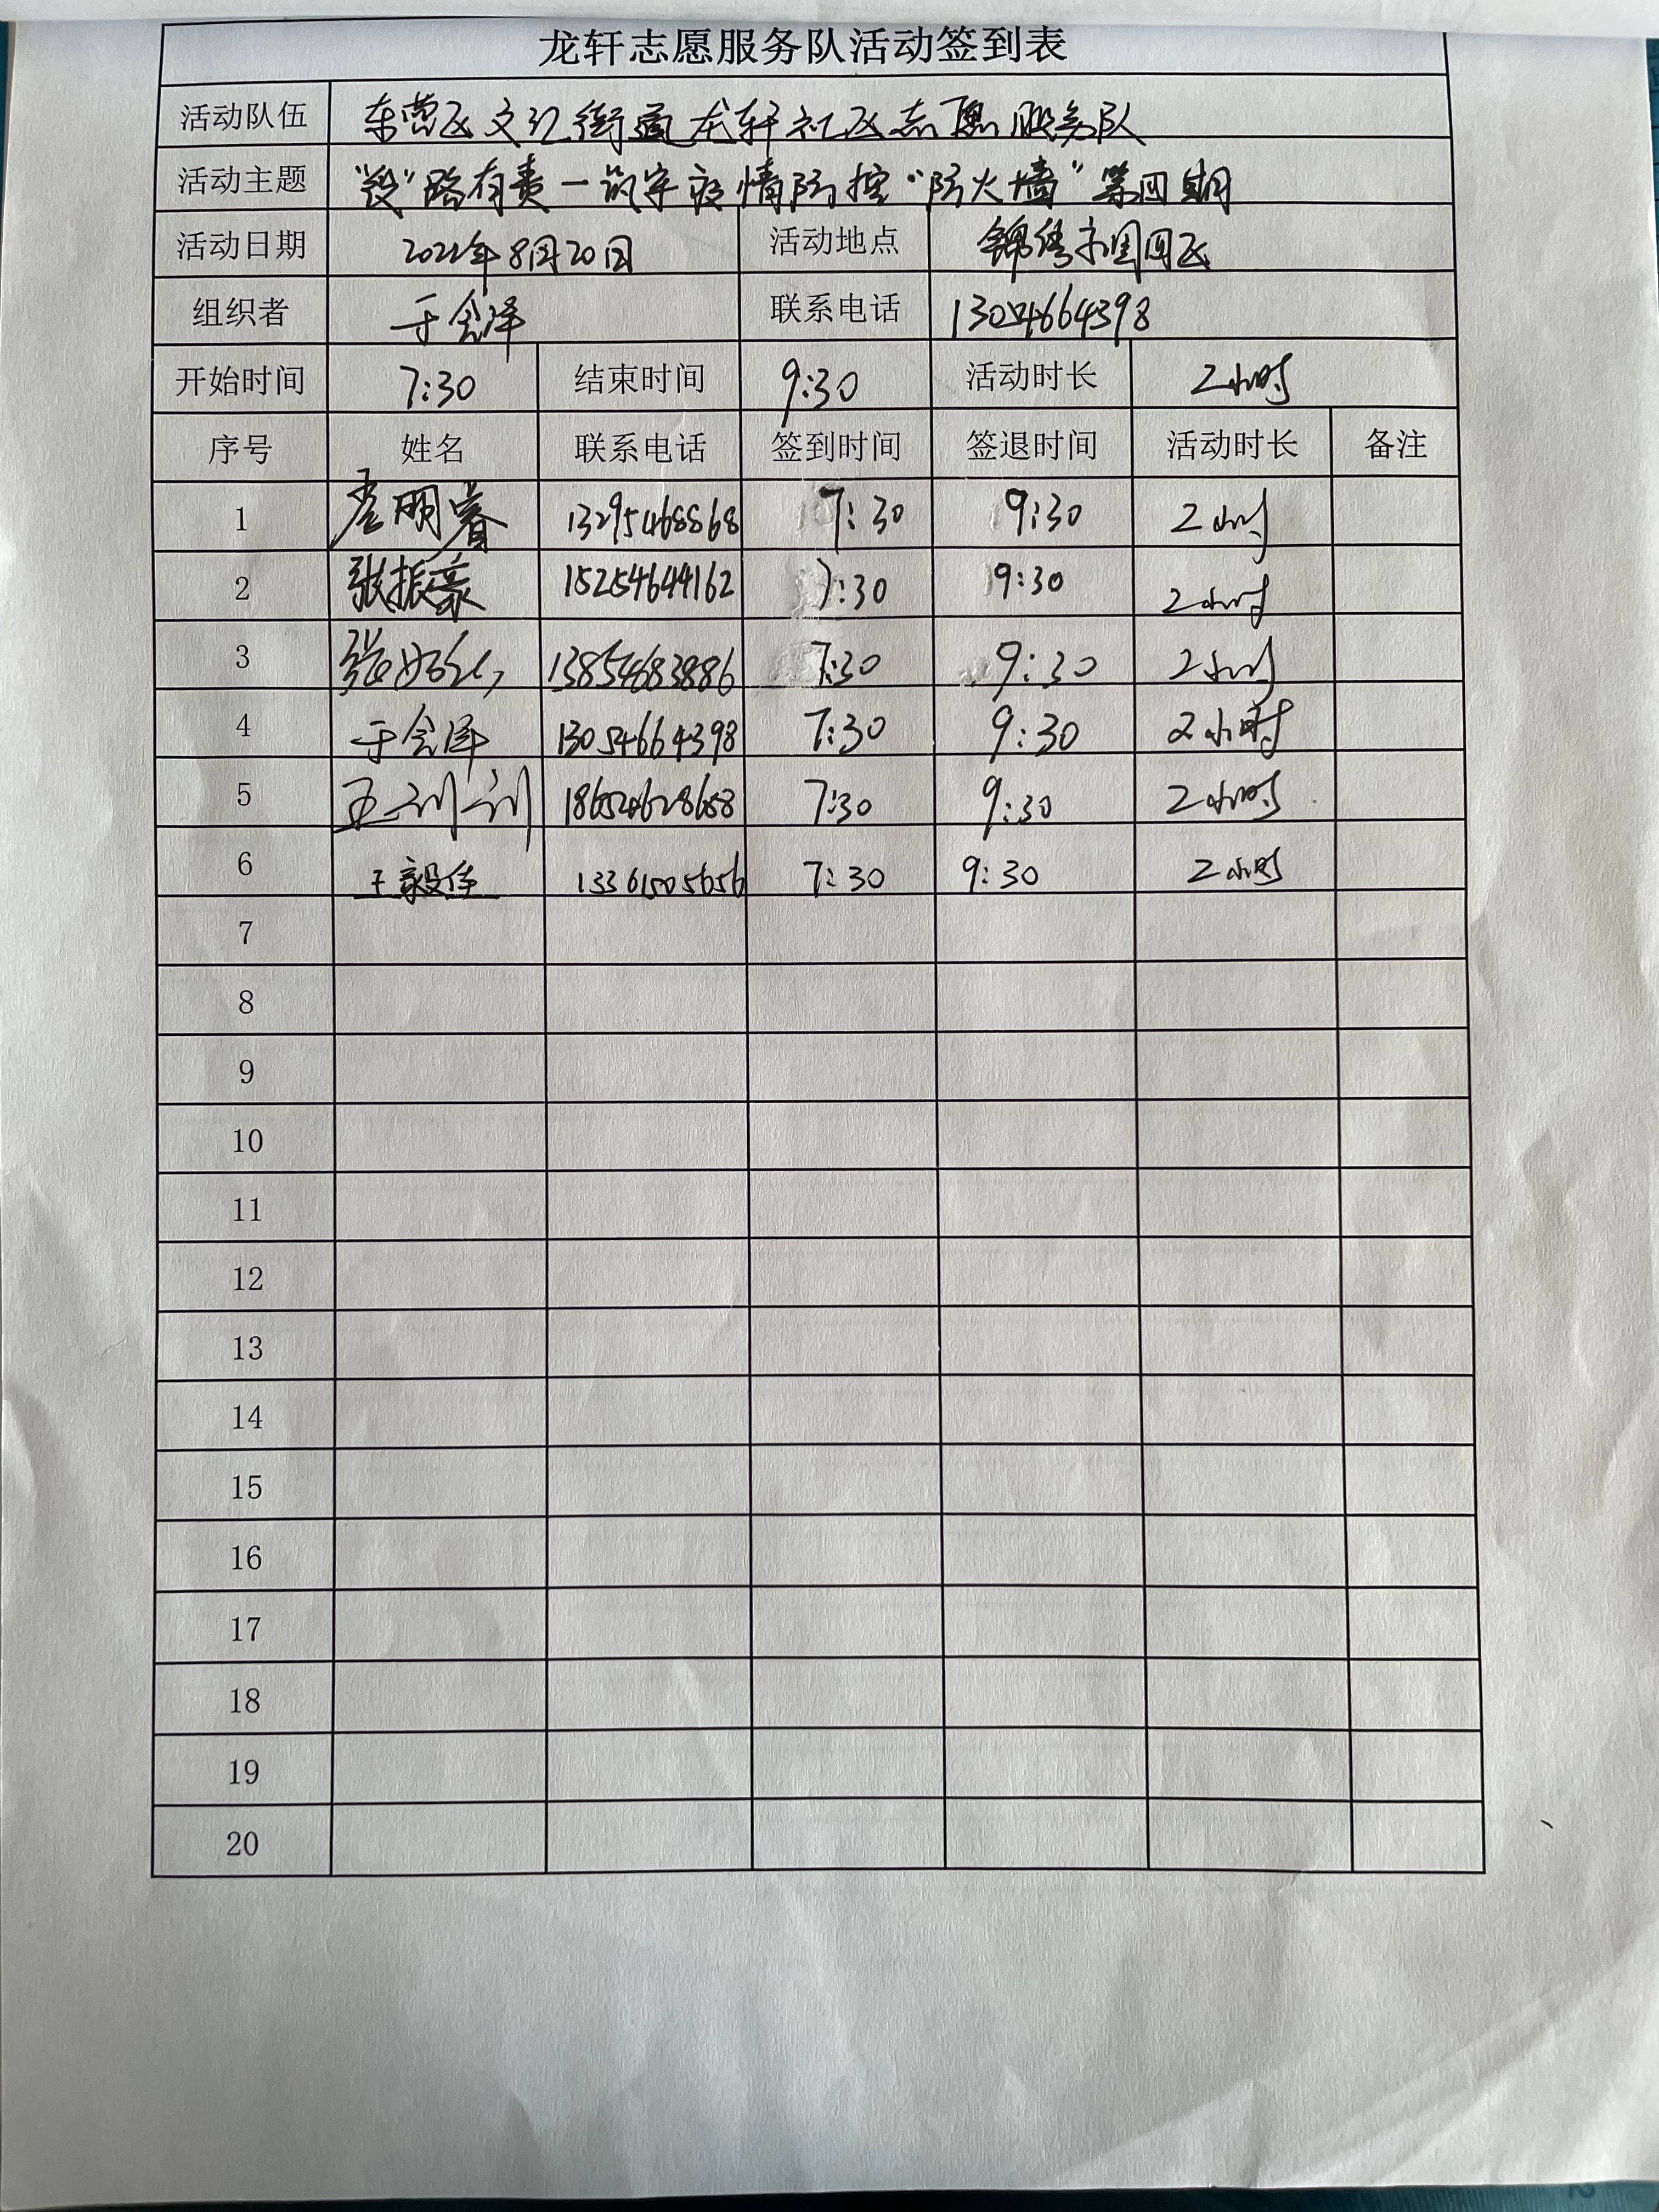 龙轩志愿服务队活动签到表
活动队伍 东营区文汇街道龙轩社区志愿服务队
活动主题 "役"路有责一筑牢疫情防控"防火墙"第四期
活动日期 2022年8月20日 活动地点 锦绣
组织者 于会泽 联系电话 13054664398
开始时间 7:30 结束时间 9:30 活动时长 2小时
序号 姓名 联系电话 签到时间 签退时间 活动时长 备注
1 明睿 13295468868 7:30 9:30 2小时
2 张振豪 15254644162 7:30 9:30 2小时
3 张 13854683886 7:30 9:30 2小时
4 于会泽 13054664398 7:30 9:30 2小时
5 18654628658 7:30 9:30 2小时
6 王毅佳 13361505656 7:30 9:30 2小时
7
8
9
10
11
12
13
14
15
16
17
18
19
20